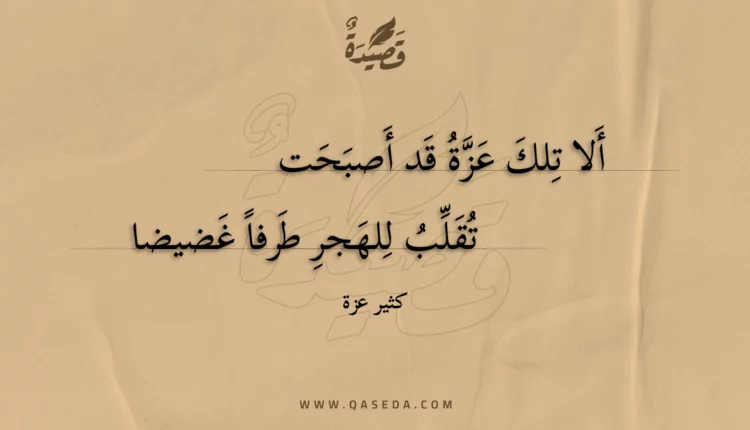 قَصِيدَةٌ
أَلا تِلكَ عَزَّةُ قَد أَصبَحَت
تُقَلِّبُ لِلهَجرِ طَرفاً غَضيضا
كثير عزة
WWW.QASEDA.COM